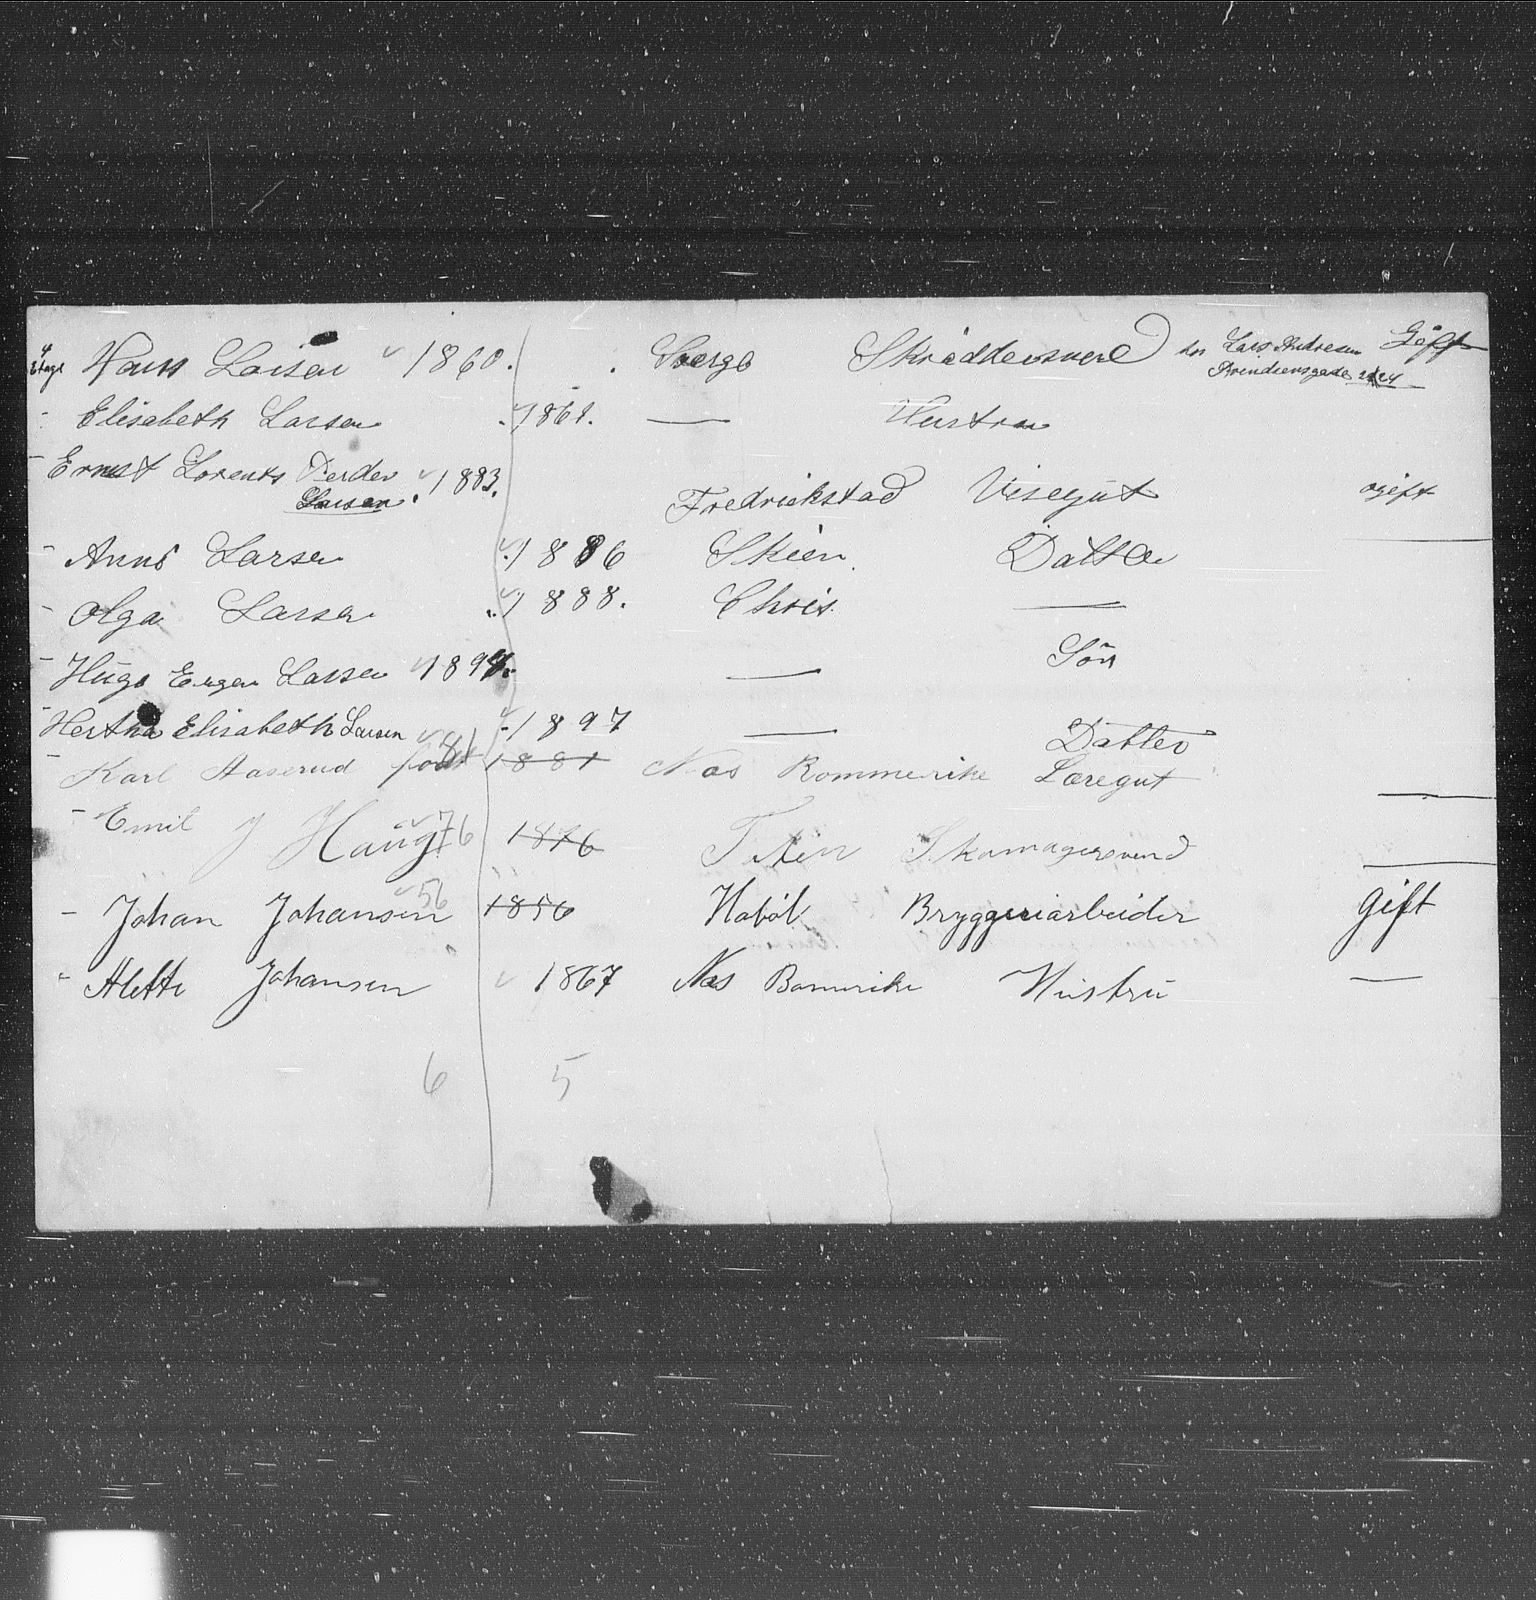 4 Etage Hans Larsen 1860. Sverge Skræddersvend hos Lars Andresen Gift
Arendtensgade 24
- Elisabeth Larsen 1861. — Hustru
- Ernst Lorents Larsen 1883. Fredrickstad Visegut ogift
- Anne Larsen 1886 Skien Datter —
- Olga Larsen 1888. Chris. —
- Hugo Eugen Larsen 1894. — Sön
- Hertha Elisabeth Larsen 1897 — Datter
- Karl Haserud født 81 1881 Næs Rommerike Læregut —
- Emil J Haug 76 1876 Skomagersvend —
- Johan Johansen 56 1856 Haböl Bryggeriarbeider gift
- Alette Johansen 1867 Næs Romerike Hustru —
6 5